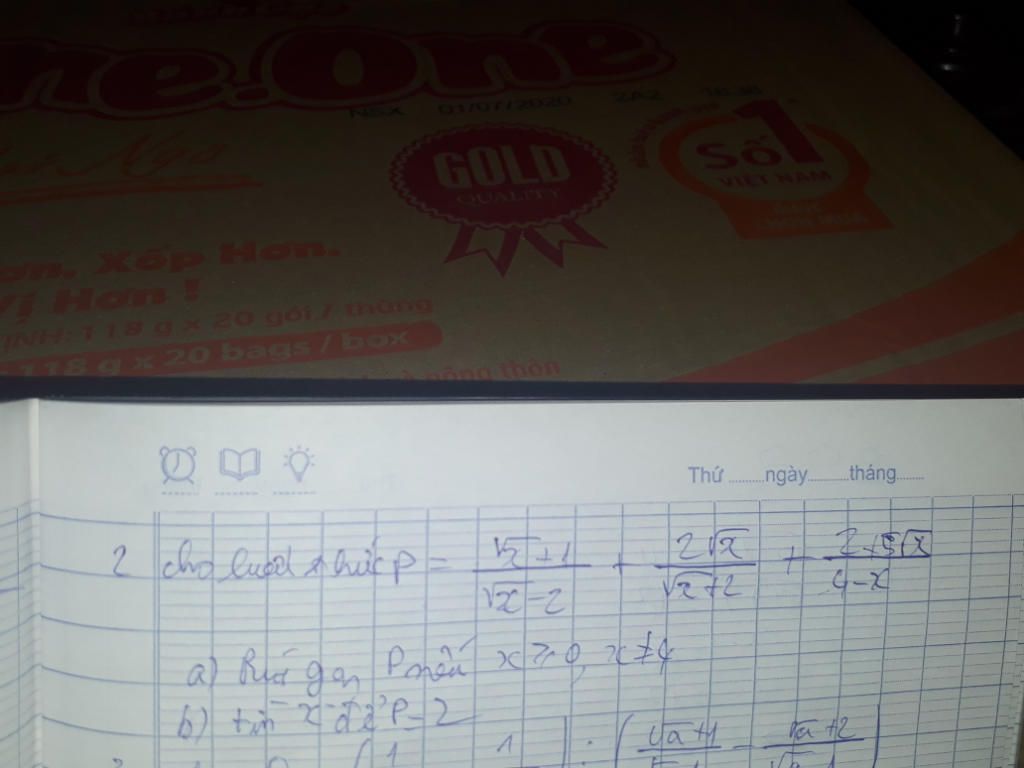 he·One
NSX 01/07/2020 2A2
GOLD
QUALITY
Số 1
VIỆT NAM
Ngô
ơn. Xốp Hơn.
Vị Hơn !
ỊNH: 118 g x 20 gói / thùng
118 g x 20 bags / box
nông thôn
Thứ ..........ngày..........tháng.......
2 cho P = (√x+1)/(√x-2) + 2√x/(√x+2) + (2+5√x)/(4-x)
a) Rút gọn P nếu x ≥ 0, x ≠ 4
b) tìm x để P = 2
(√a+1) - (√a+2)